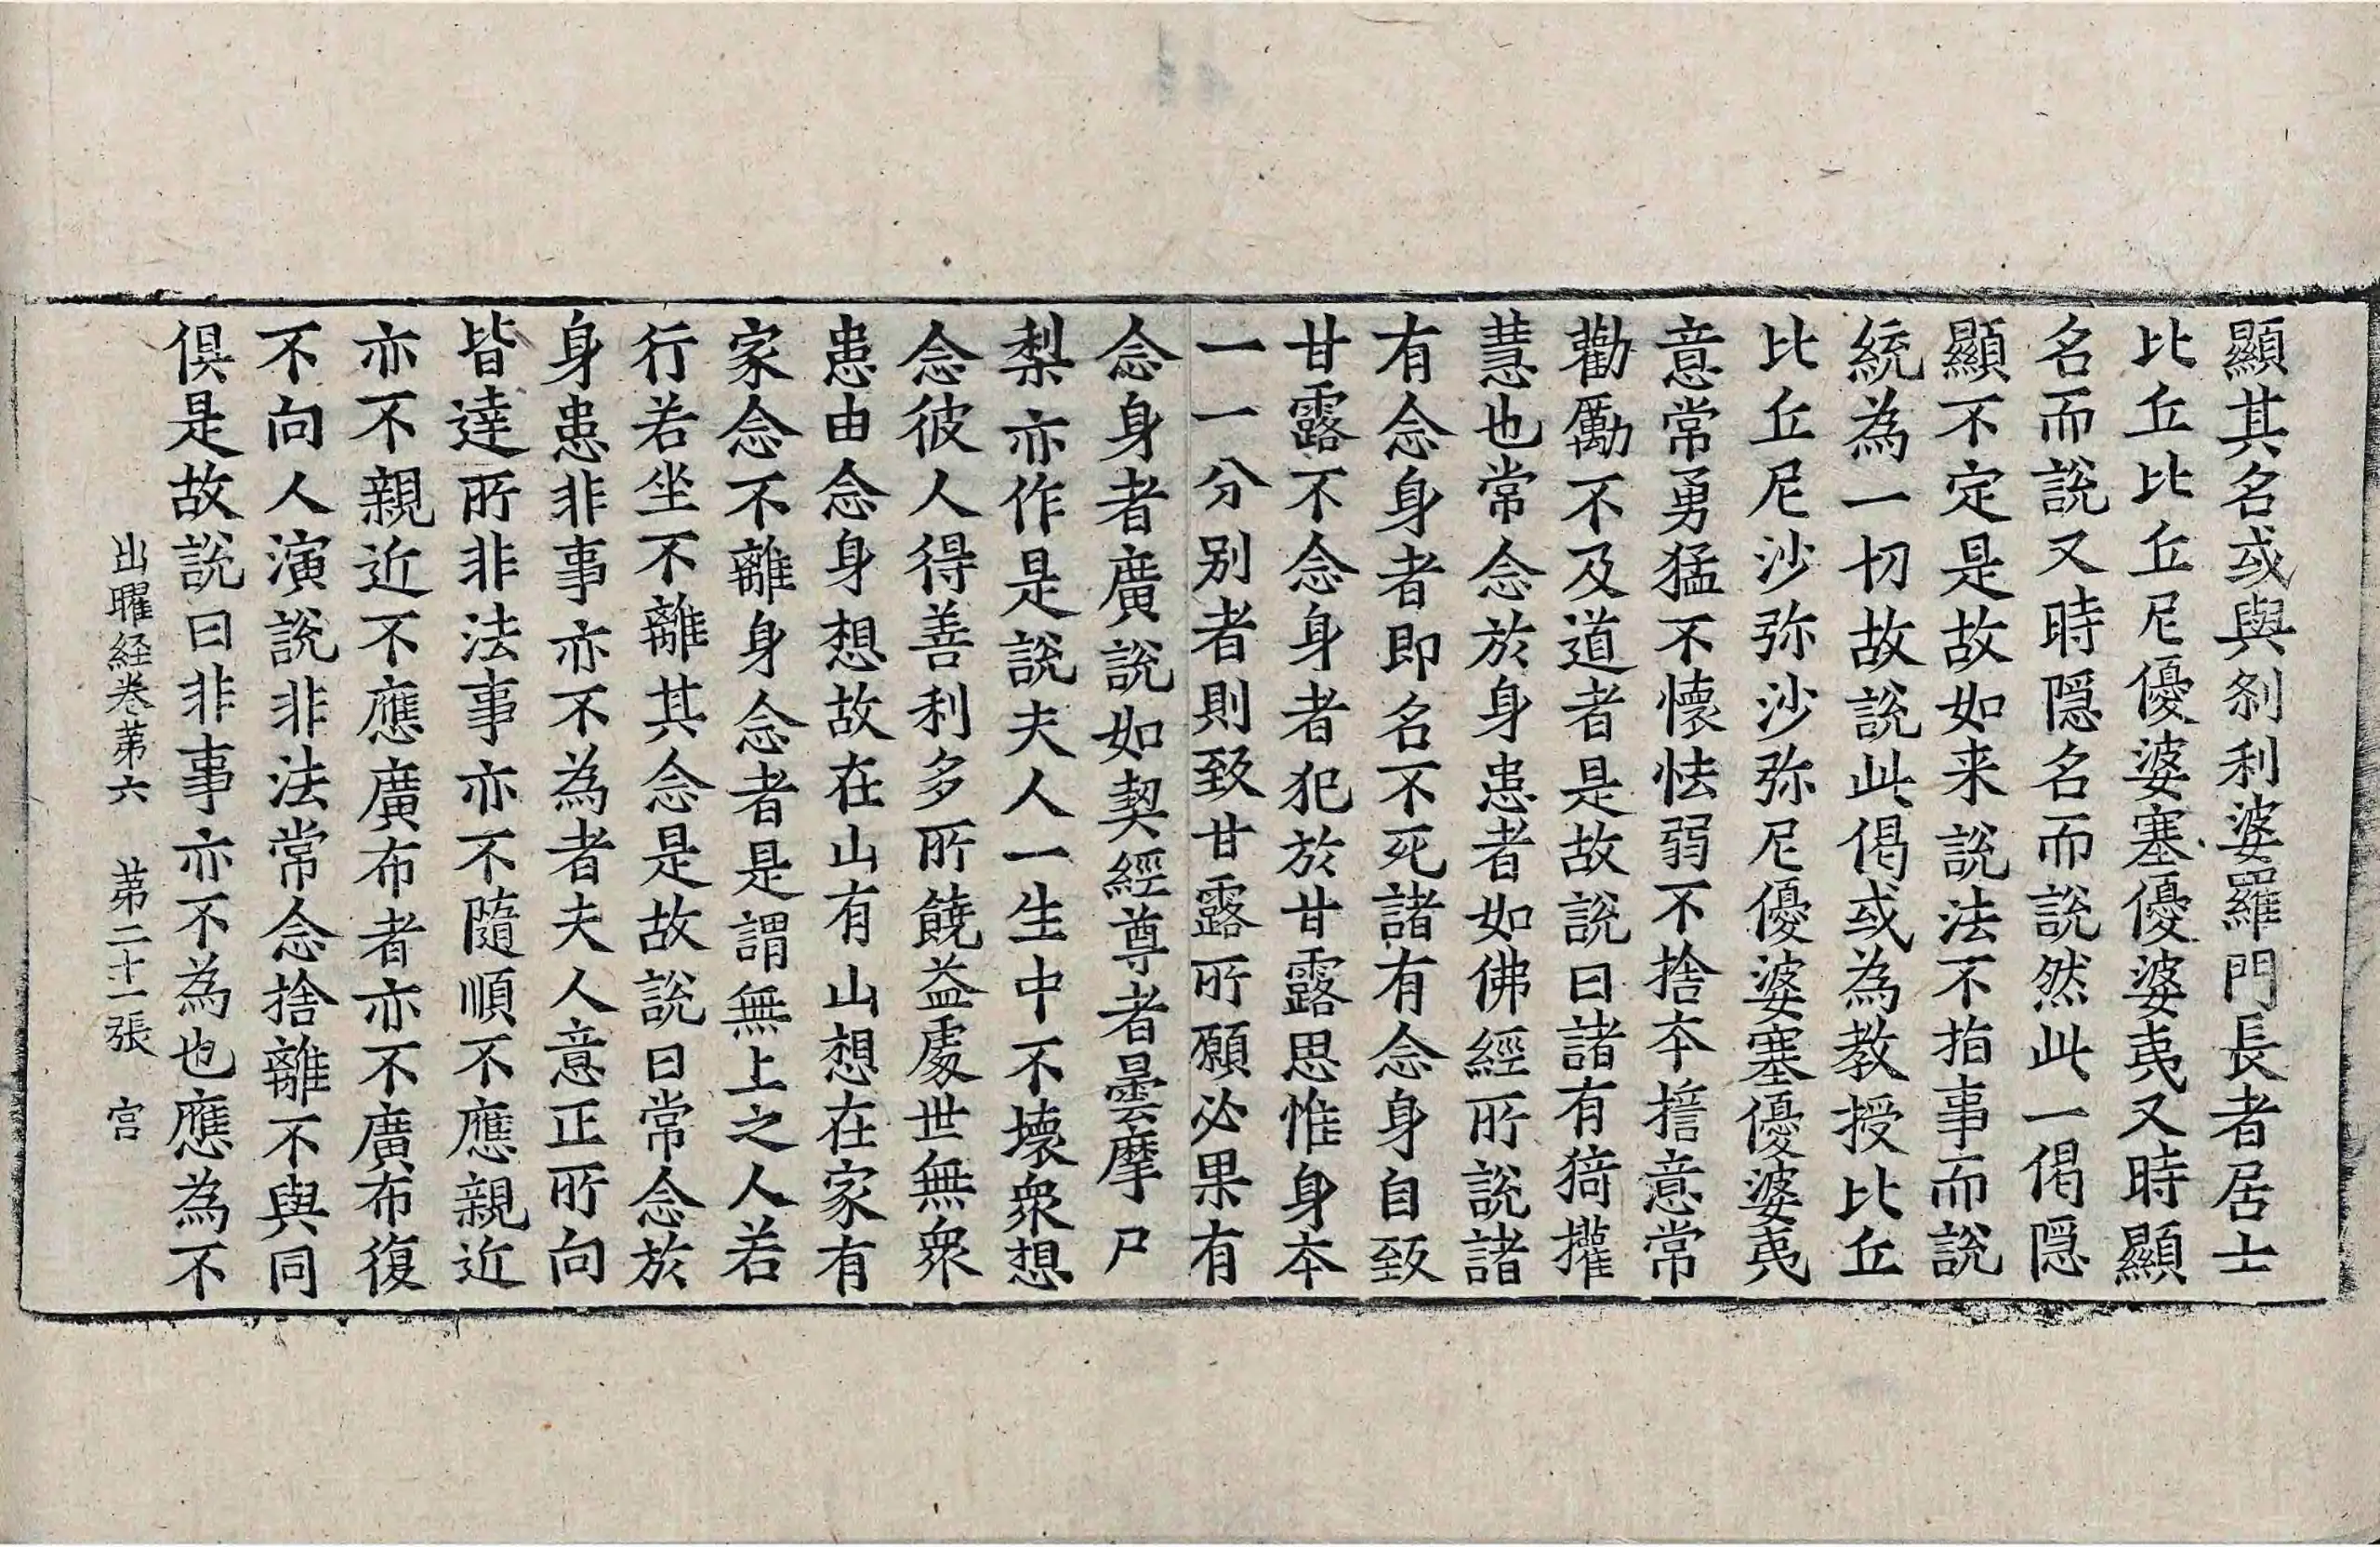 顯其名或與剎利婆羅門長者居士
比丘比丘尼優婆塞優婆夷又時顯
名而說又時隱名而說然此一偈隱
顯不定是故如来說法不指事而說
統為一切故說此偈或為教授比丘
比丘尼沙弥沙弥尼優婆塞優婆夷
意常勇猛不懷怯弱不捨本擔意常
勸勵不及道者是故說曰諸有猗權
慧也常念於身患者如佛經所說諸
有念身者即名不死諸有念身自致
甘露不念身者犯於甘露思惟身本
一一分别者則致甘露所願必果有
念身者廣說如契經尊者曇摩尸
梨亦作是說夫人一生中不壞衆想
念彼人得善利多所饒益處世無衆
患由念身想故在山有山想在家有
家念不離身念者是謂無上之人若
行若坐不離其念是故說曰常念於
身患非事亦不為者夫人意正所向
皆達所非法事亦不隨順不應親近
亦不親近不應廣布者亦不廣布復
不向人演說非法常念捨離不與同
俱是故說曰非事亦不為也應為不
出曜経卷苐六 苐二十一張 宫